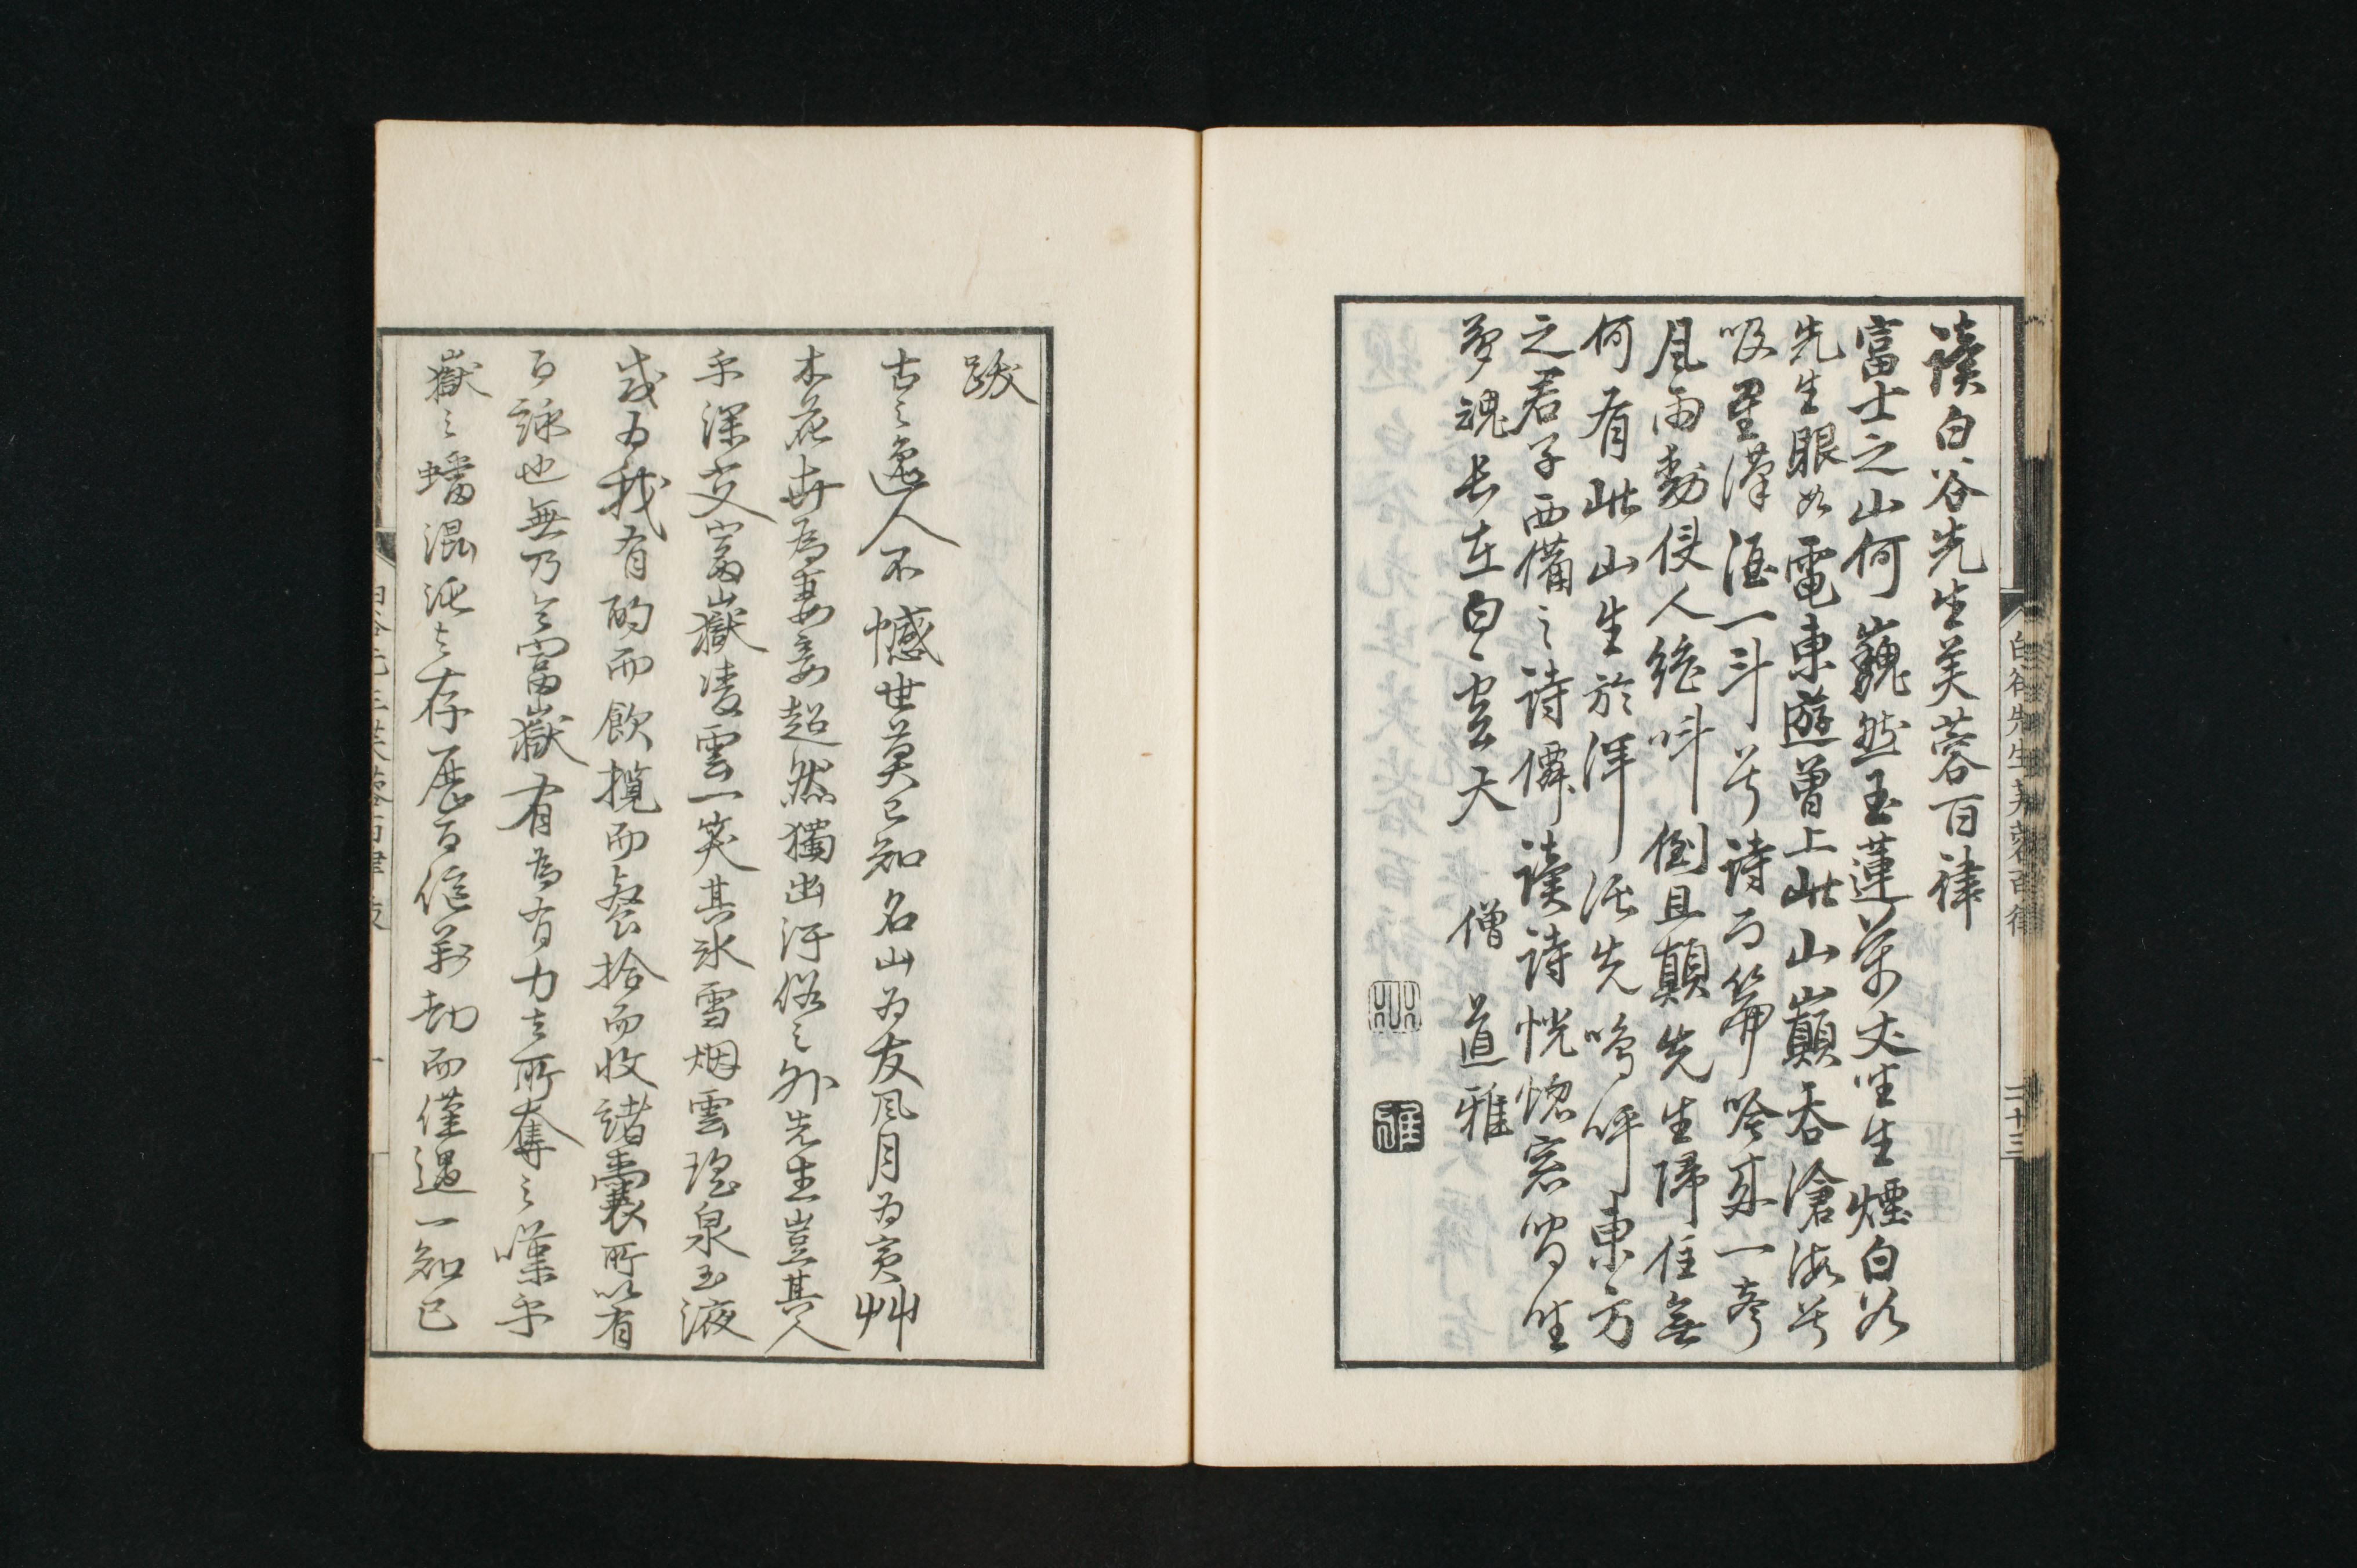 讀白谷先生芙蓉百律
富士之山何巍然玉蓮萬丈坐生煙白谷
先生眼如電東遊曾上此山巔吞滄海兮
吸星漢酒一斗兮詩百篇吟來一夸
風雨動侵人絶叫倒且顛先生歸住無
何有此山生於渾沌先嗚呼東方
之君子西備之詩儒讀詩恍惚窓間坐
夢魂長在白雲天　僧道雅
白谷先生芙蓉百律
二十三
跋
古之逸人不憾世莫已知名山為友風月為賓艸
木花卉為妻妾超然獨出汙俗之外先生豈其人
乎深交富嶽凌雲一笑其氷雪烟雲瑶泉玉液
或為我有酌而飲攬而餐拾而收諸囊所以有
百詠也無乃令富嶽有為有力者所奪之嘆乎
嶽之蟠混沌之存歴百億萬劫而僅遇一知已